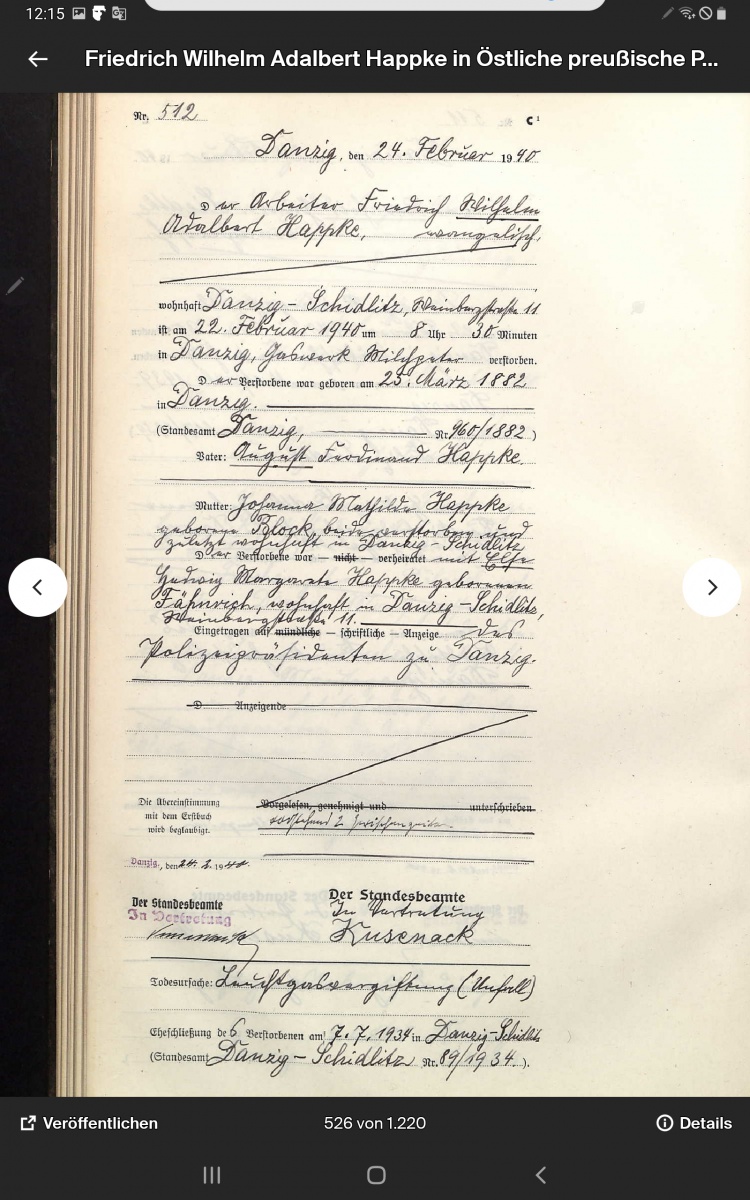 12:15
Friedrich Wilhelm Adalbert Happke in Östliche preußische P...
Nr. 512
C¹
Danzig, den 24. Februar 1940
Der Arbeiter Friedrich Wilhelm
Adalbert Happke, evangelisch,
wohnhaft Danzig-Schidlitz, Weinbergstraße 11
ist am 22. Februar 1940 um 8 Uhr 30 Minuten
in Danzig, Gaswerk Milchpeter verstorben.
Der Verstorbene war geboren am 25. März 1882
in Danzig.
(Standesamt Danzig, Nr. 960/1882)
Vater: August Ferdinand Happke.
Mutter: Johanna Mathilde Happke
geborene Block, beide verstorben und
zuletzt wohnhaft in Danzig-Schidlitz
Der Verstorbene war – nicht – verheiratet mit Else
Hedwig Margarete Happke geborenen
Fähnrich, wohnhaft in Danzig-Schidlitz,
Weinbergstraße 11.
Eingetragen auf mündliche – schriftliche – Anzeige des
Polizeipräsidenten zu Danzig.
D Anzeigende
Die Übereinstimmung
mit dem Erstbuch
wird beglaubigt.
Vorgelesen, genehmigt und unterschrieben
vorstehend 2 Zwischenzeilen
Danzig, den 24. 2. 1940.
Der Standesbeamte
In Vertretung
Der Standesbeamte
In Vertretung
Kusenack
Todesursache: Leuchtgasvergiftung (Unfall)
Eheschließung des Verstorbenen am 7.7.1934 in Danzig-Schidlitz
(Standesamt Danzig-Schidlitz Nr. 89/1934.).
Veröffentlichen
526 von 1.220
Details